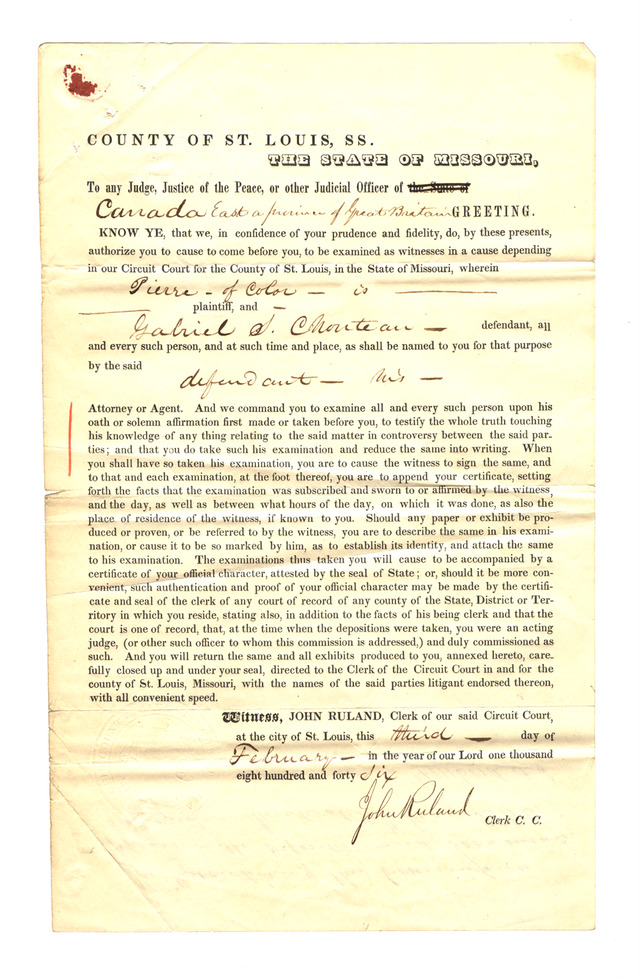 COUNTY OF ST. LOUIS, SS.
THE STATE OF MISSOURI,
To any Judge, Justice of the Peace, or other Judicial Officer of the State of
Canada East a province of Great Britain GREETING.
KNOW YE, that we, in confidence of your prudence and fidelity, do, by these presents,
authorize you to cause to come before you, to be examined as witnesses in a cause depending
in our Circuit Court for the County of St. Louis, in the State of Missouri, wherein
Pierre - of Color - is
plaintiff, and -
Gabriel S. Chouteau - defendant, all
and every such person, and at such time and place, as shall be named to you for that purpose
by the said
defendant - his -
Attorney or Agent. And we command you to examine all and every such person upon his
oath or solemn affirmation first made or taken before you, to testify the whole truth touching
his knowledge of any thing relating to the said matter in controversy between the said par-
ties; and that you do take such his examination and reduce the same into writing. When
you shall have so taken his examination, you are to cause the witness to sign the same, and
to that and each examination, at the foot thereof, you are to append your certificate, setting
forth the facts that the examination was subscribed and sworn to or affirmed by the witness,
and the day, as well as between what hours of the day, on which it was done, as also the
place of residence of the witness, if known to you. Should any paper or exhibit be pro-
duced or proven, or be referred to by the witness, you are to describe the same in his exami-
nation, or cause it to be so marked by him, as to establish its identity, and attach the same
to his examination. The examinations thus taken you will cause to be accompanied by a
certificate of your official character, attested by the seal of State; or, should it be more con-
venient, such authentication and proof of your official character may be made by the certifi-
cate and seal of the clerk of any court of record of any county of the State, District or Ter-
ritory in which you reside, stating also, in addition to the facts of his being clerk and that the
court is one of record, that, at the time when the depositions were taken, you were an acting
judge, (or other such officer to whom this commission is addressed,) and duly commissioned as
such. And you will return the same and all exhibits produced to you, annexed hereto, care-
fully closed up and under your seal, directed to the Clerk of the Circuit Court in and for the
county of St. Louis, Missouri, with the names of the said parties litigant endorsed thereon,
with all convenient speed.
Witness, JOHN RULAND, Clerk of our said Circuit Court,
at the city of St. Louis, this third - day of
February - in the year of our Lord one thousand
eight hundred and forty Six
John Ruland Clerk C. C.